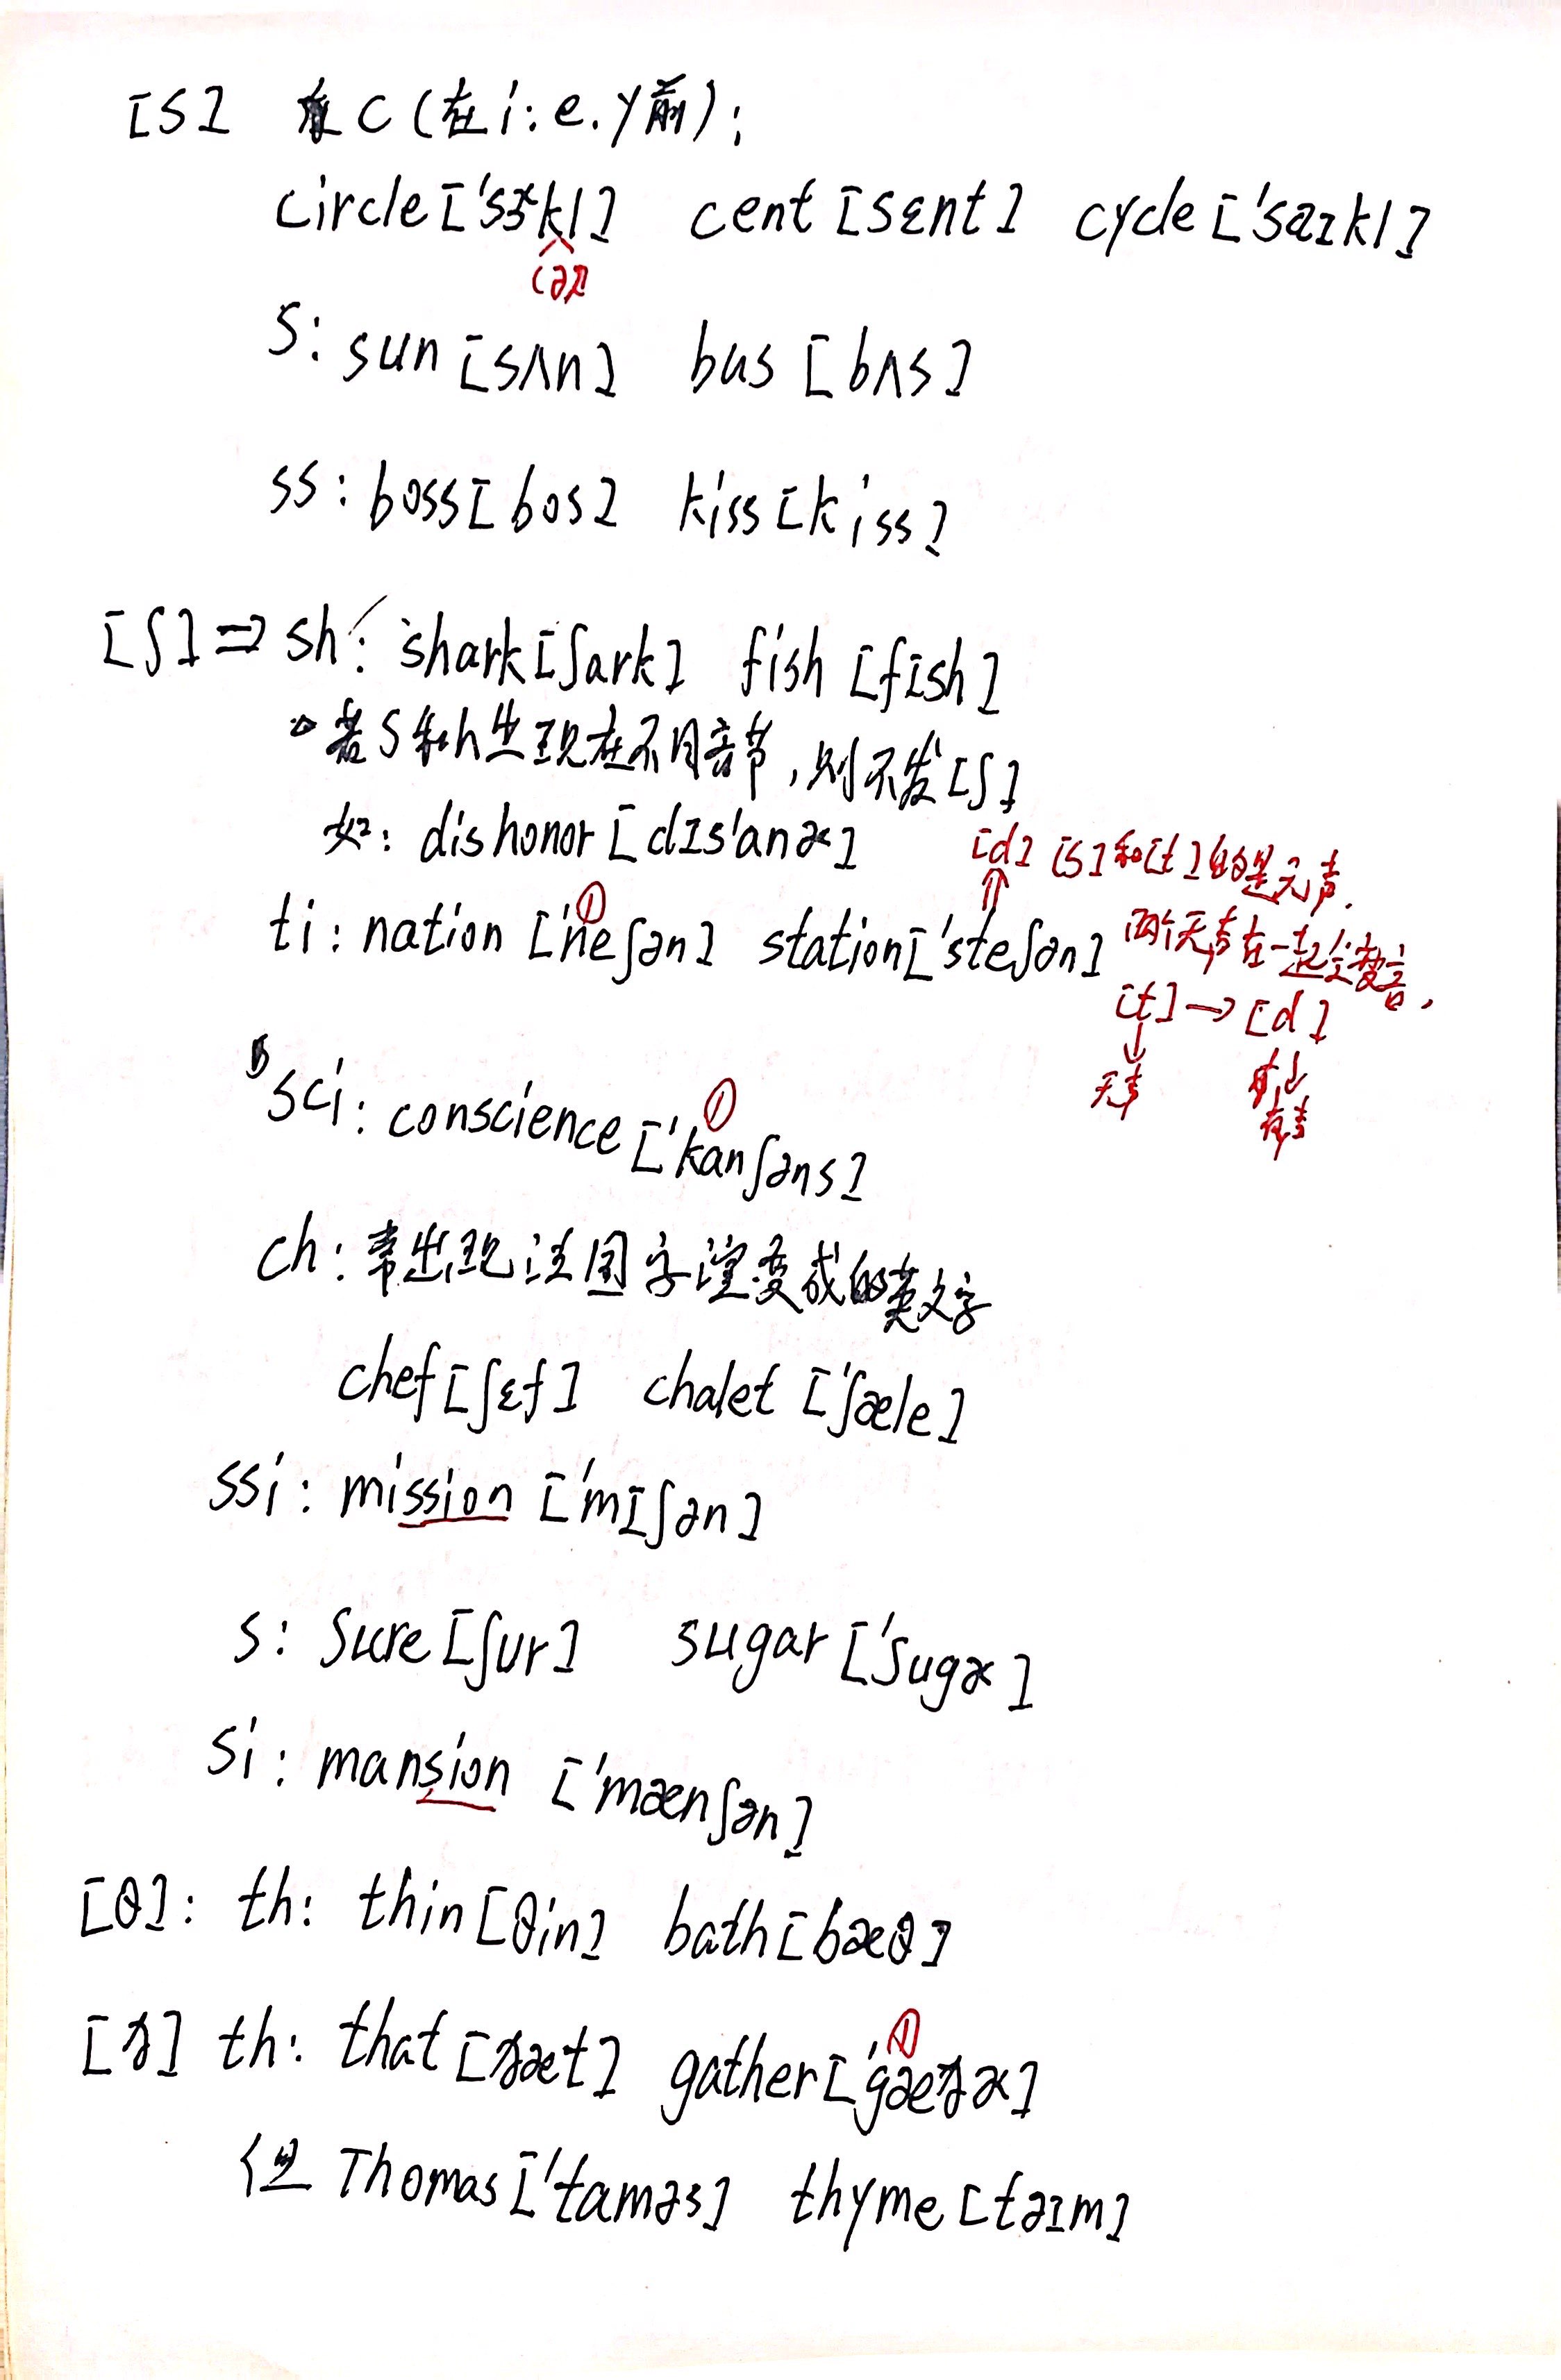 [s] 在c(在i:e.y前):
circle['sɝkl] cent [sɛnt] cycle ['saɪkl]
(ə)
s: sun [sʌn] bus [bʌs]
ss: boss[bos] kiss[kiss]
[ʃ]⇒ sh: shark[ʃark] fish [fɪsh]
若s和h出现在不同音节,则不发[ʃ]
如: dishonor [dɪs'anɚ]
[d] [s]和[t]的是无声.
ti: nation ['neʃən] station['steʃən] 两个无声在一起会变音,
①
[t]→[d]
无声 有声
sci: conscience ['kanʃəns]
①
ch: 常出现法国字演变成的英文字
chef[ʃɛf] chalet ['ʃæle]
ssi: mission ['mɪʃən]
s: sure[ʃur] sugar ['ʃugɚ]
si: mansion ['mænʃən]
[θ]: th: thin[θin] bath[bæθ]
[ð] th: that[ðæt] gather['gæðɚ]
①
但 Thomas['taməs] thyme[taɪm]